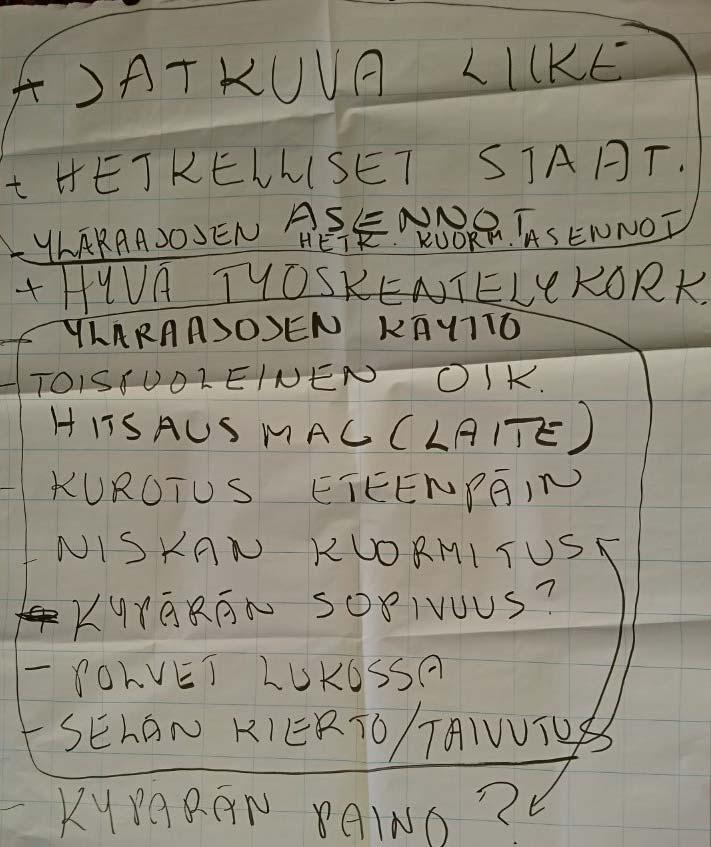 + JATKUVA LIIKE
+ HETKELLISET STAAT.
ASENNOT
- YLÄRAAJOJEN HETK. KUORM. ASENNOT
+ HYVÄ TYÖSKENTELYKORK.
- YLÄRAAJOJEN KÄYTTÖ
- TOISPUOLEINEN OIK.
HITSAUS MAG (LAITE)
- KUROTUS ETEENPÄIN
- NISKAN KUORMITUS
KYPÄRÄN SOPIVUUS?
- POLVET LUKOSSA
- SELÄN KIERTO/TAIVUTUS
- KYPÄRÄN PAINO ?